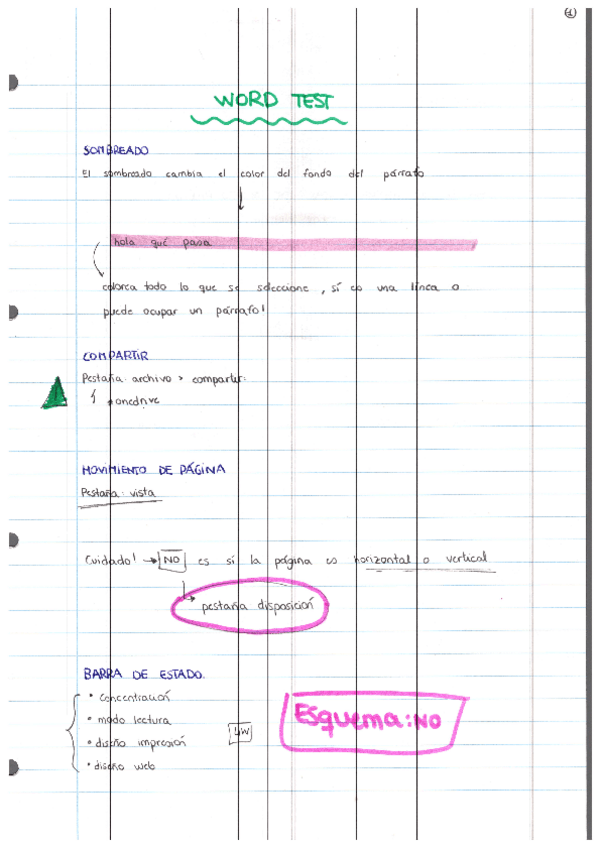 1
WORD TEST
SOMBREADO
El sombreado cambia el color del fondo del párrafo
hola qué pasa
colorea todo lo que se seleccione, sí es una línea o
puede ocupar un párrafo!
COMPARTIR
Pestaña: archivo > compartir:
onedrive
MOVIMIENTO DE PÁGINA
Pestaña: vista
Cuidado! → NO es sí la página es horizontal o vertical
pestaña disposición
BARRA DE ESTADO.
• concentración
• modo lectura
• diseño impresión
• diseño web
Esquema: NO